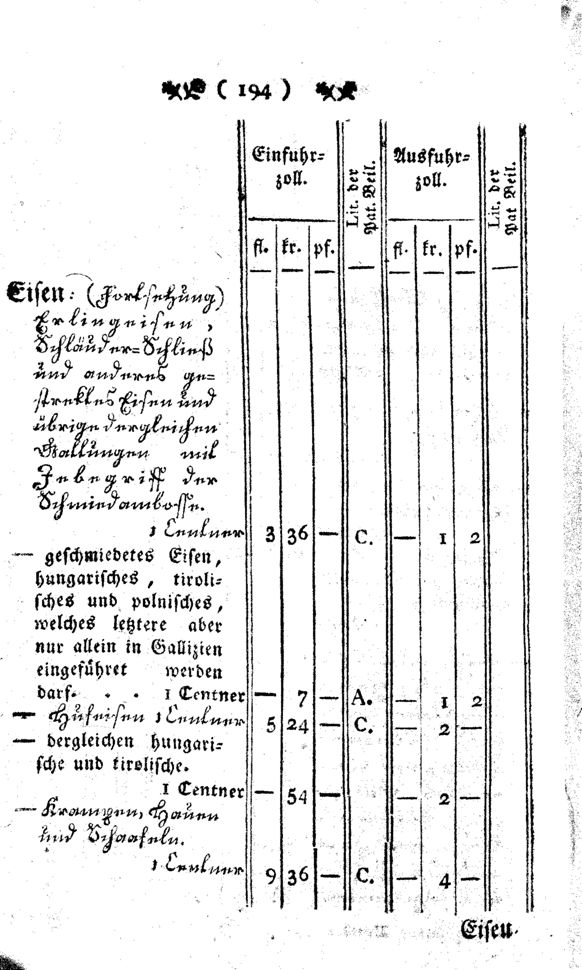 ( 194 )
Einfuhr= zoll. Lit. der Pat. Beil. Ausfuhr= zoll. Lit. der Pat Beil.
fl. kr. pf. fl. kr. pf.
Eisen: (Fortsetzung)
Erlingeisen,
Schläuder=Schließ
und anderes ge=
strektes Eisen und
übrige dergleichen
Gattungen mit
Inbegriff der
Schmiedambosse.
1 Centner 3 36 — C. — 1 2
— geschmiedetes Eisen,
hungarisches, tiroli=
sches und polnisches,
welches letztere aber
nur allein in Gallizien
eingeführet werden
darf. . . 1 Centner — 7 — A. — 1 2
— Hufeisen 1 Centner 5 24 — C. — 2 —
— dergleichen hungari=
sche und tirolische.
1 Centner — 54 — — 2 —
— Krampen, Hauen
und Schaufeln.
1 Centner 9 36 — C. — 4 —
Eisen.